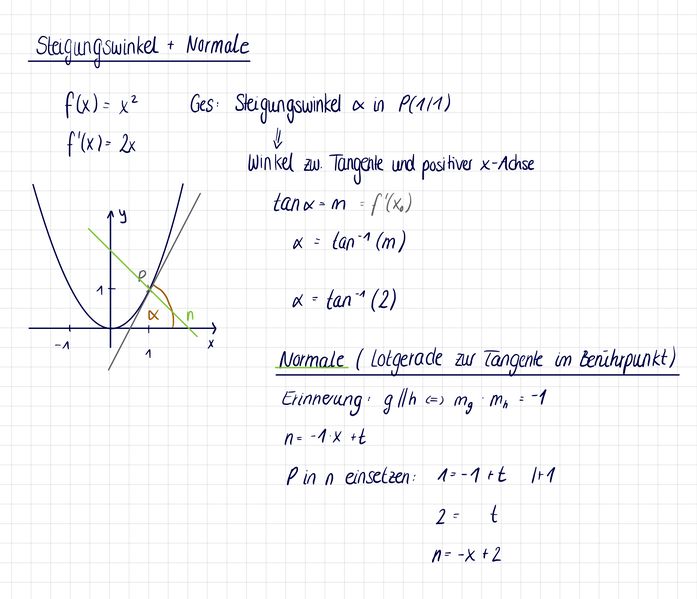 Steigungswinkel + Normale
f(x) = x²
Ges: Steigungswinkel α in P(1/1)
f'(x) = 2x
⇓
Winkel zw. Tangente und positiver x-Achse
tan α = m = f'(x₀)
α = tan⁻¹ (m)
α = tan⁻¹ (2)
y
P
1
α
n
-1
1
x
Normale (Lotgerade zur Tangente im Berührpunkt)
Erinnerung: g // h <=> m_g · m_h = -1
n = -1·x + t
P in n einsetzen: 1 = -1 + t |+1
2 = t
n = -x + 2